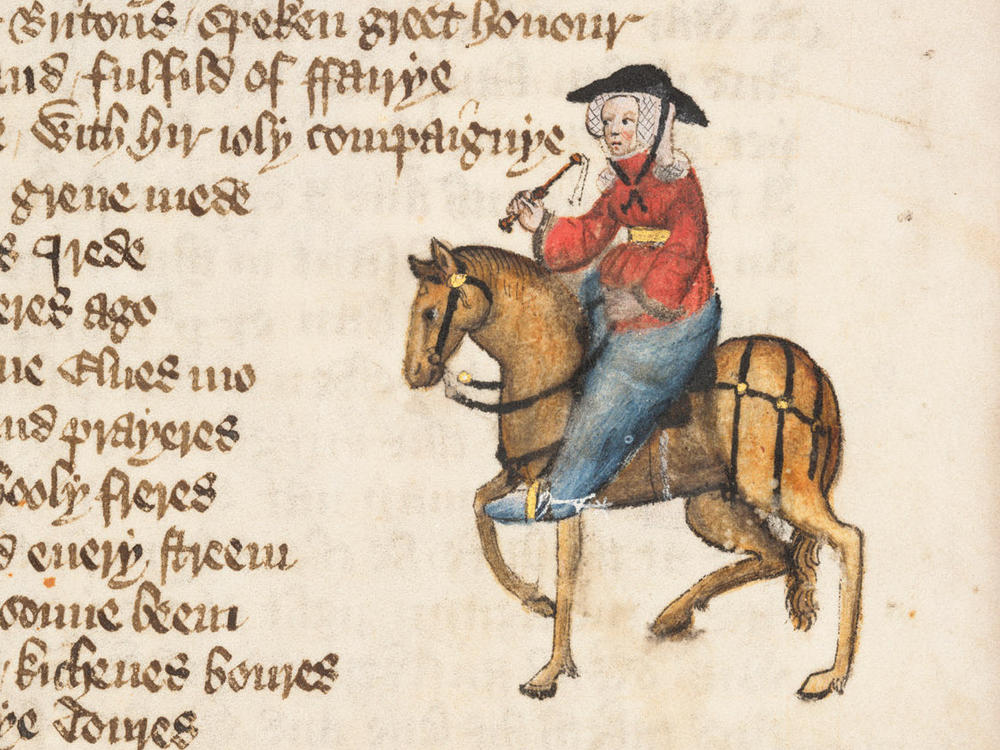 Britons / speken greet honour
fulfild of ffairye
/ With hir ioly compaignye
grene mede
rede
ago
Elues mo
and prayeres
hooly freres
euery streem
sonne beem
/ kichenes boures
Toures